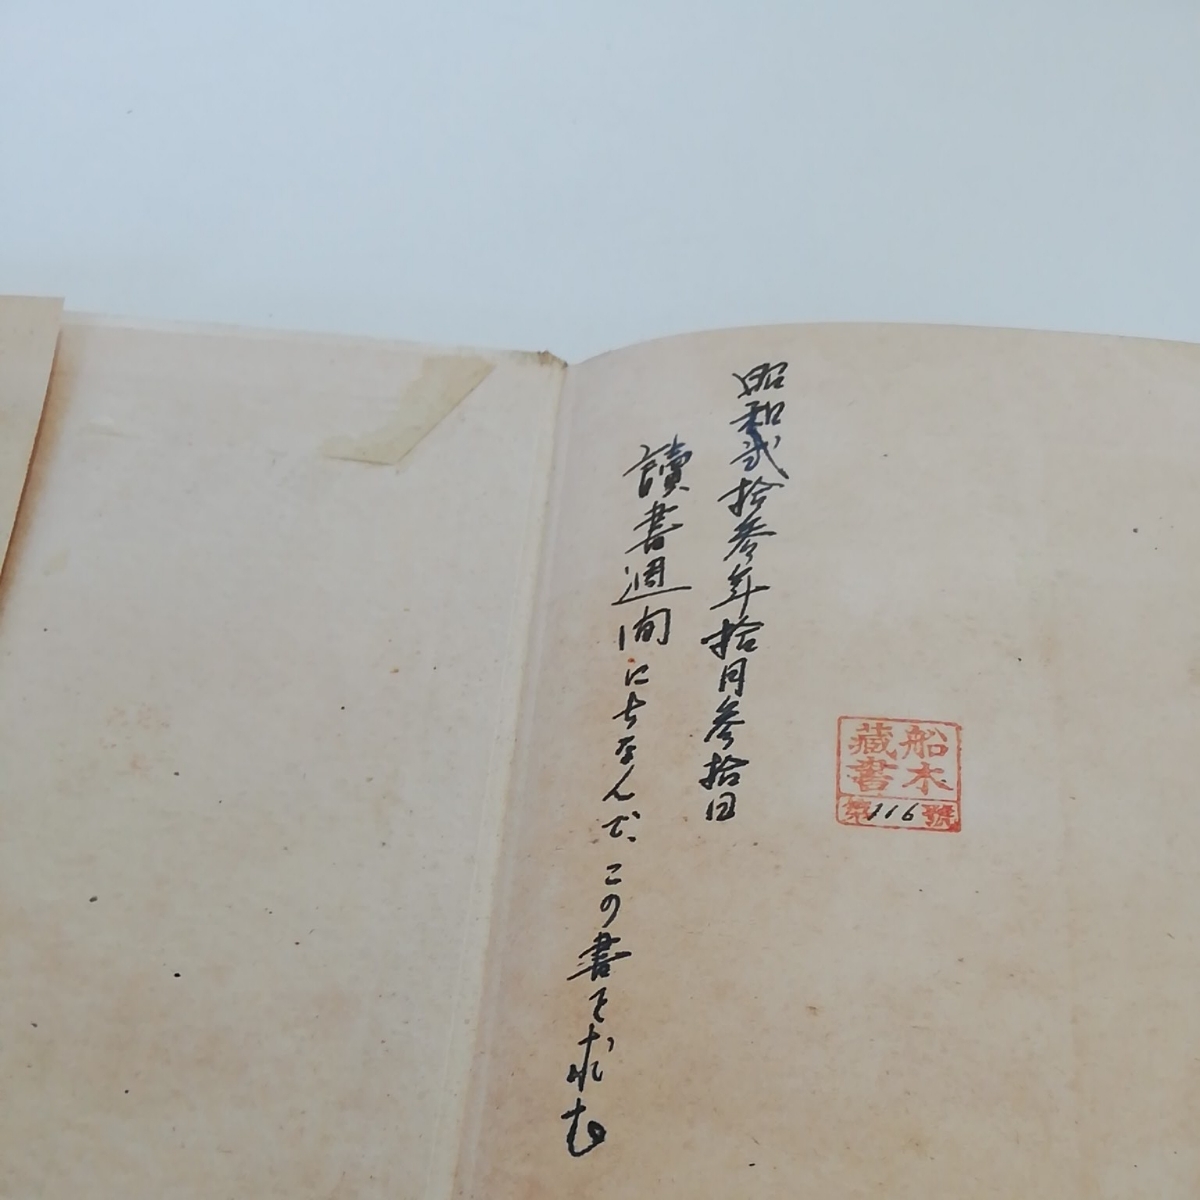 船木
藏書
第116號
昭和弐拾参年拾月参拾日
讀書週间にちなんで、この書を求む